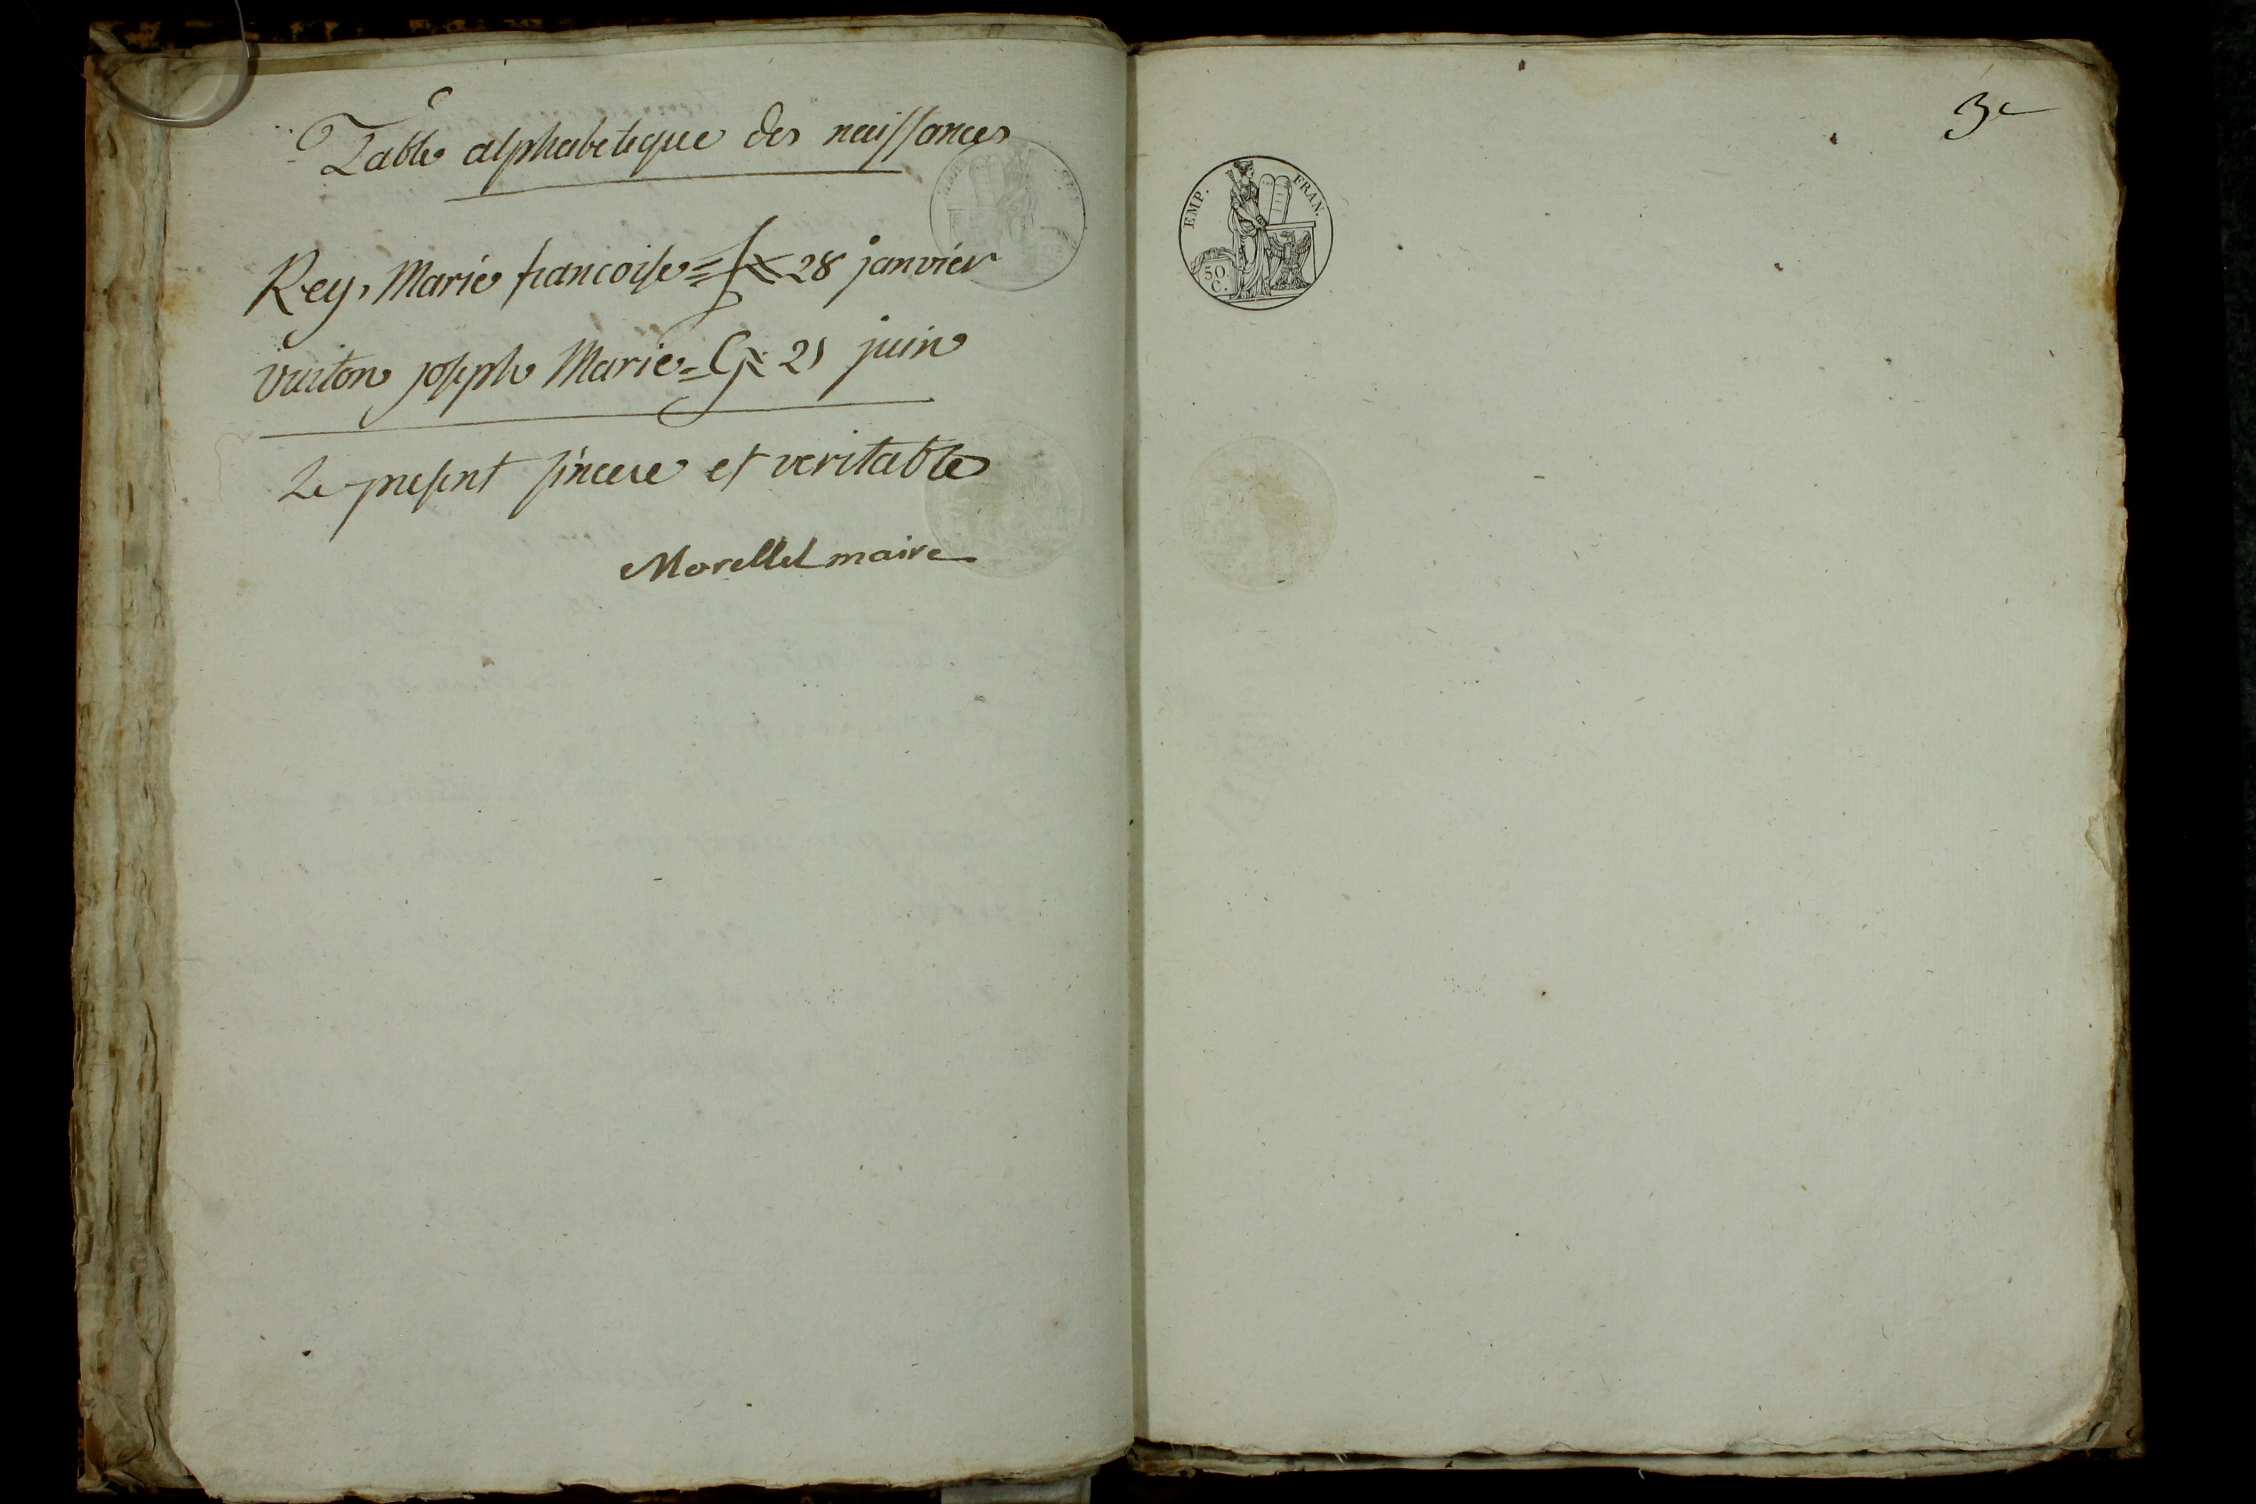 Table alphabetique des naissances
Rey, Marie francoise = le 28 janvier
vuiton joseph Marie = le 21 juin
Le present sincere et veritable
Morellet maire
3e
EMP. FRAN.
50
C.